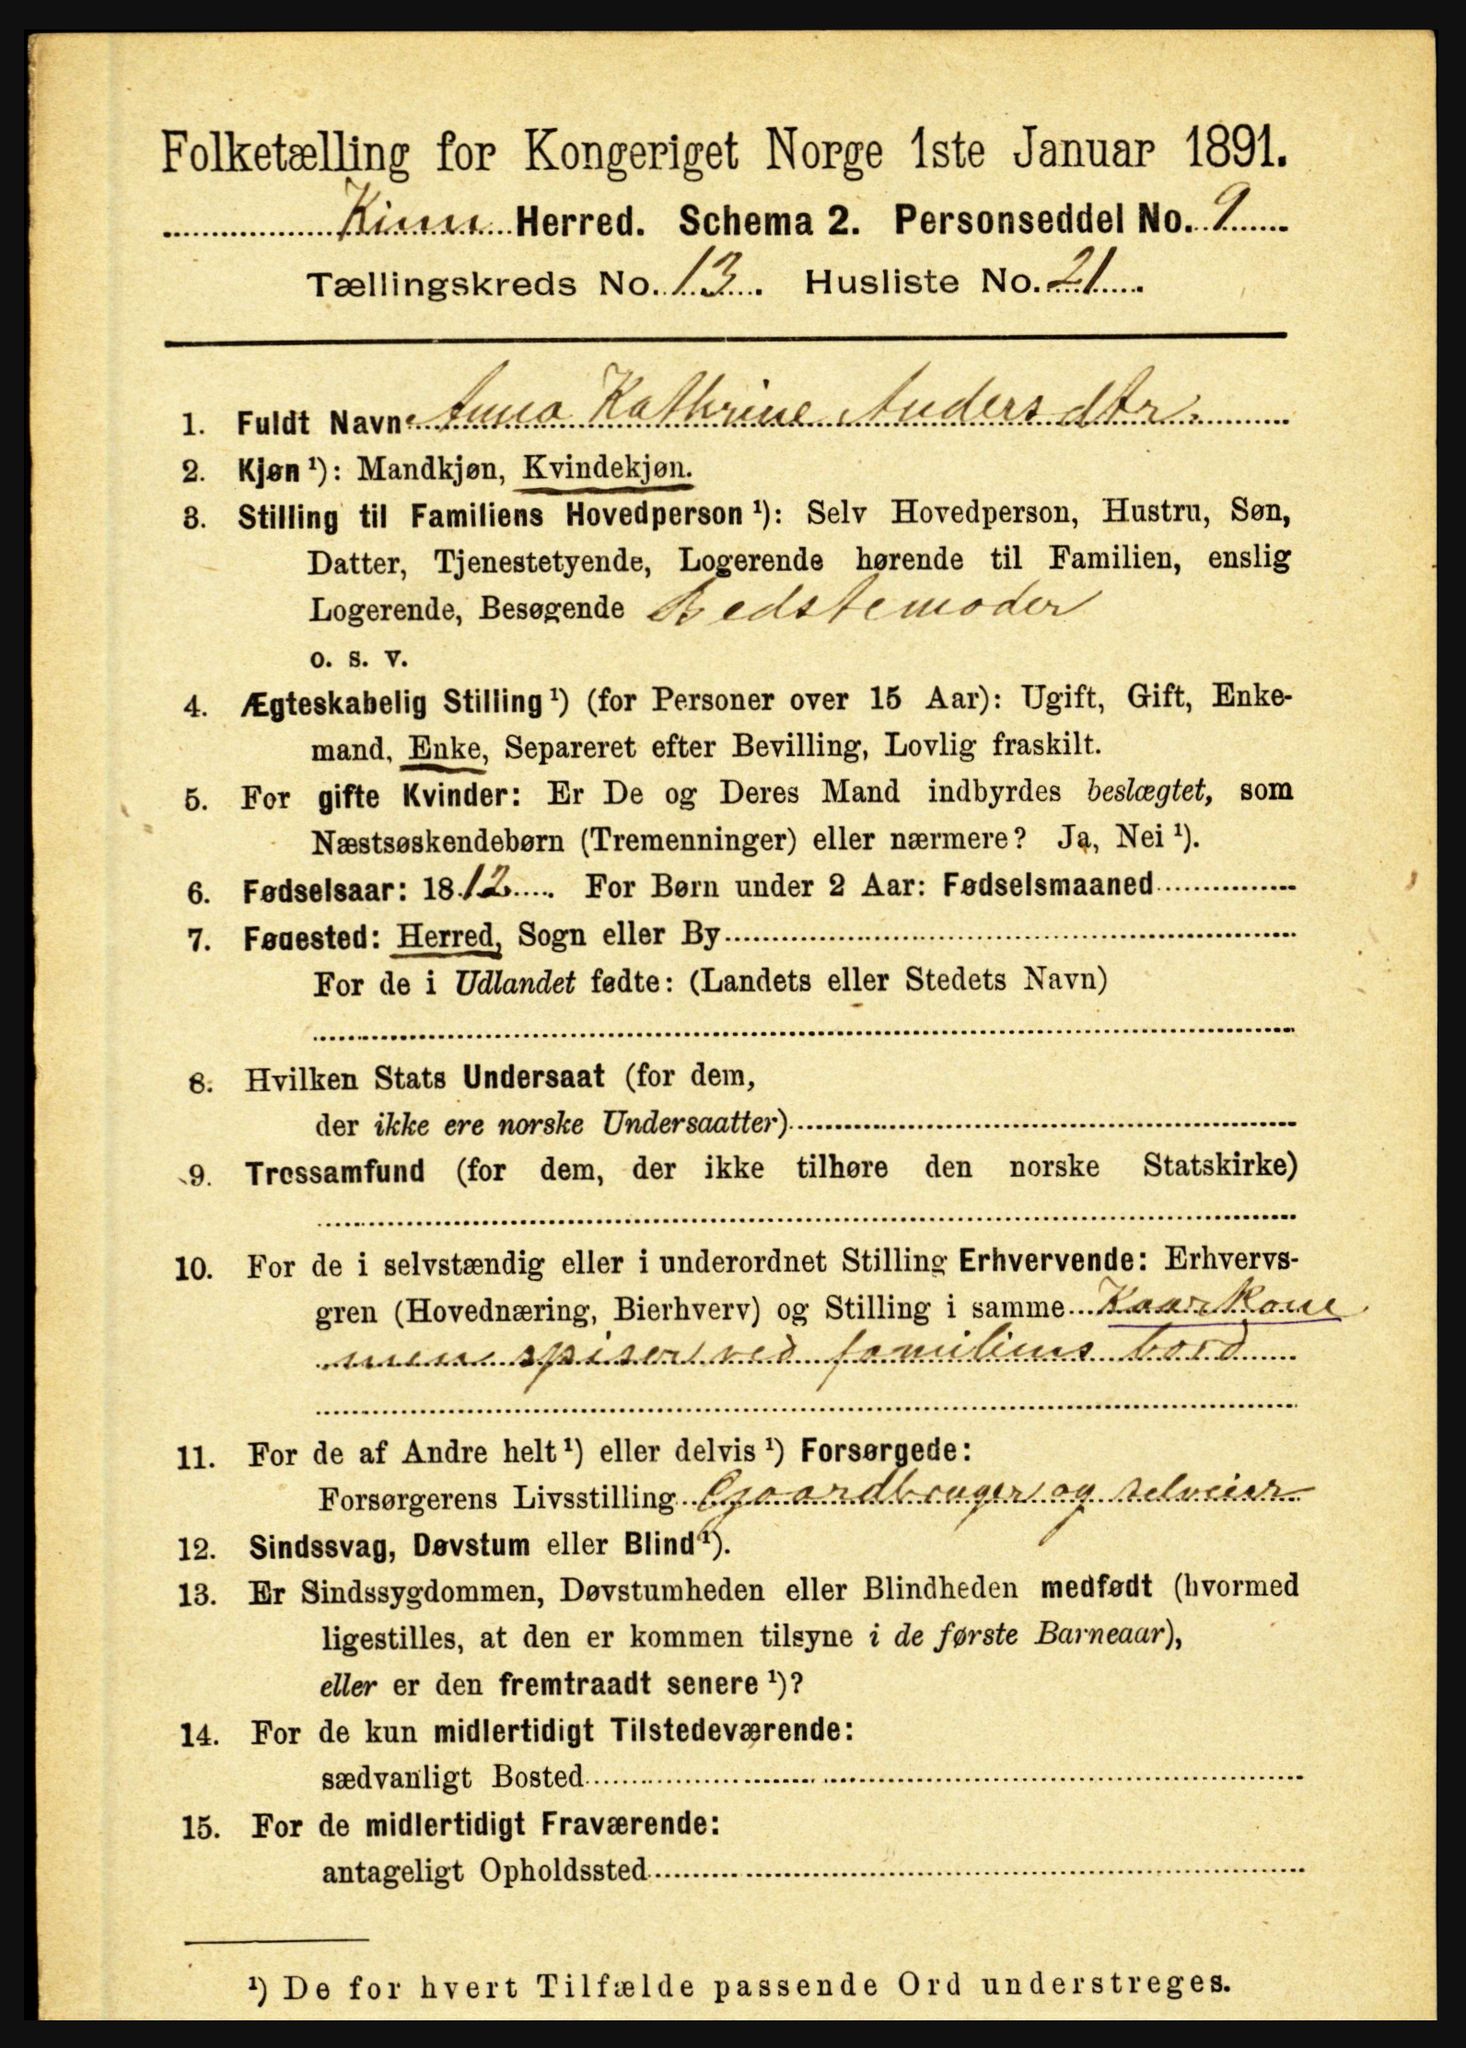 Folketælling for Kongeriget Norge 1ste Januar 1891.
Kinn Herred. Schema 2. Personseddel No. 9
Tællingskreds No. 13. Husliste No. 21
1. Fuldt Navn Anna Kathrine Andersdtr.
2. Kjøn ¹): Mandkjøn, Kvindekjøn.
3. Stilling til Familiens Hovedperson ¹): Selv Hovedperson, Hustru, Søn,
Datter, Tjenestetyende, Logerende hørende til Familien, enslig
Logerende, Besøgende Bedstemoder
o. s. v.
4. Ægteskabelig Stilling ¹) (for Personer over 15 Aar): Ugift, Gift, Enke-
mand, Enke, Separeret efter Bevilling, Lovlig fraskilt.
5. For gifte Kvinder: Er De og Deres Mand indbyrdes beslægtet, som
Næstsøskendebørn (Tremenninger) eller nærmere? Ja, Nei ¹).
6. Fødselsaar: 1812. For Børn under 2 Aar: Fødselsmaaned
7. Fødested: Herred, Sogn eller By
For de i Udlandet fødte: (Landets eller Stedets Navn)
8. Hvilken Stats Undersaat (for dem,
der ikke ere norske Undersaatter)
9. Trossamfund (for dem, der ikke tilhøre den norske Statskirke)
10. For de i selvstændig eller i underordnet Stilling Erhvervende: Erhvervs-
gren (Hovednæring, Bierhverv) og Stilling i samme Kaarkone
men spiser ved familiens bord
11. For de af Andre helt ¹) eller delvis ¹) Forsørgede:
Forsørgerens Livsstilling Gaardbruger og selveier
12. Sindssvag, Døvstum eller Blind ¹).
13. Er Sindssygdommen, Døvstumheden eller Blindheden medfødt (hvormed
ligestilles, at den er kommen tilsyne i de første Barneaar),
eller er den fremtraadt senere ¹)?
14. For de kun midlertidigt Tilstedeværende:
sædvanligt Bosted
15. For de midlertidigt Fraværende:
antageligt Opholdssted
¹) De for hvert Tilfælde passende Ord understreges.